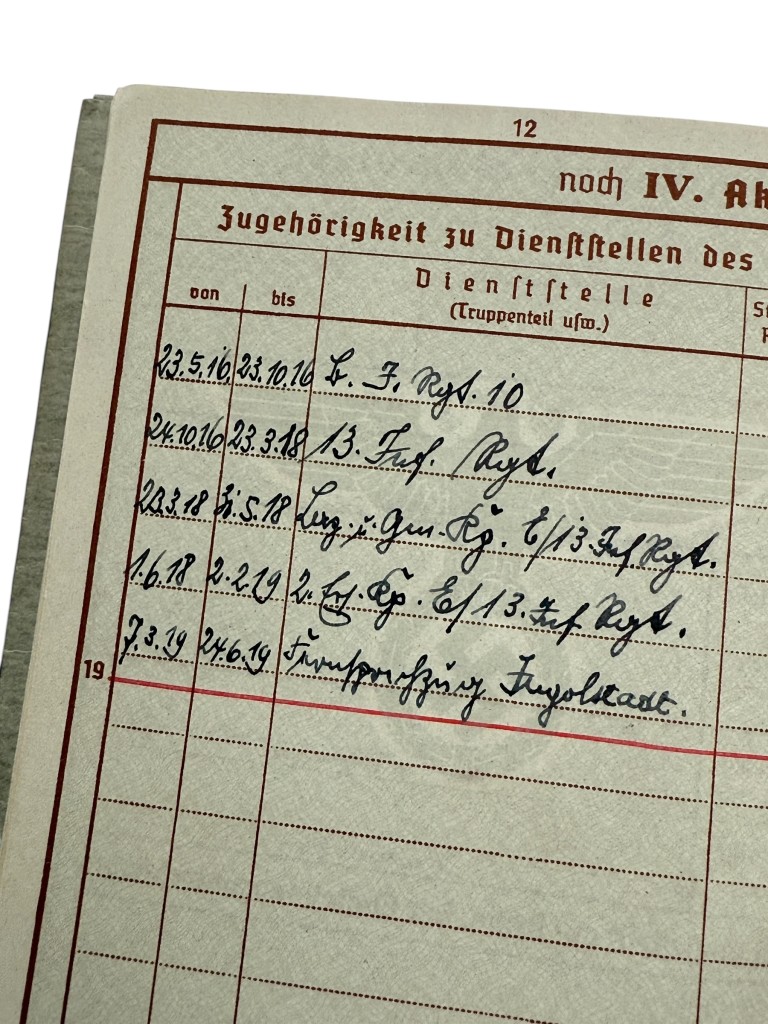 12
noch IV. Ak
Zugehörigkeit zu Dienststellen des
von bis Dienststelle
(Truppenteil usw.)
St
23.5.16. 23.10.16 L. J. Rgt. 10
24.10.16 23.3.18 13. Inf. Rgt.
3.18 31.5.18 Laz. u. Gen. Kp. E/13. Inf Rgt.
1.6.18 2.2.19 2. Ers. Kp. E/13. Inf Rgt.
7.3.19 24.6.19 Fernsprechzug Ingolstadt.
19